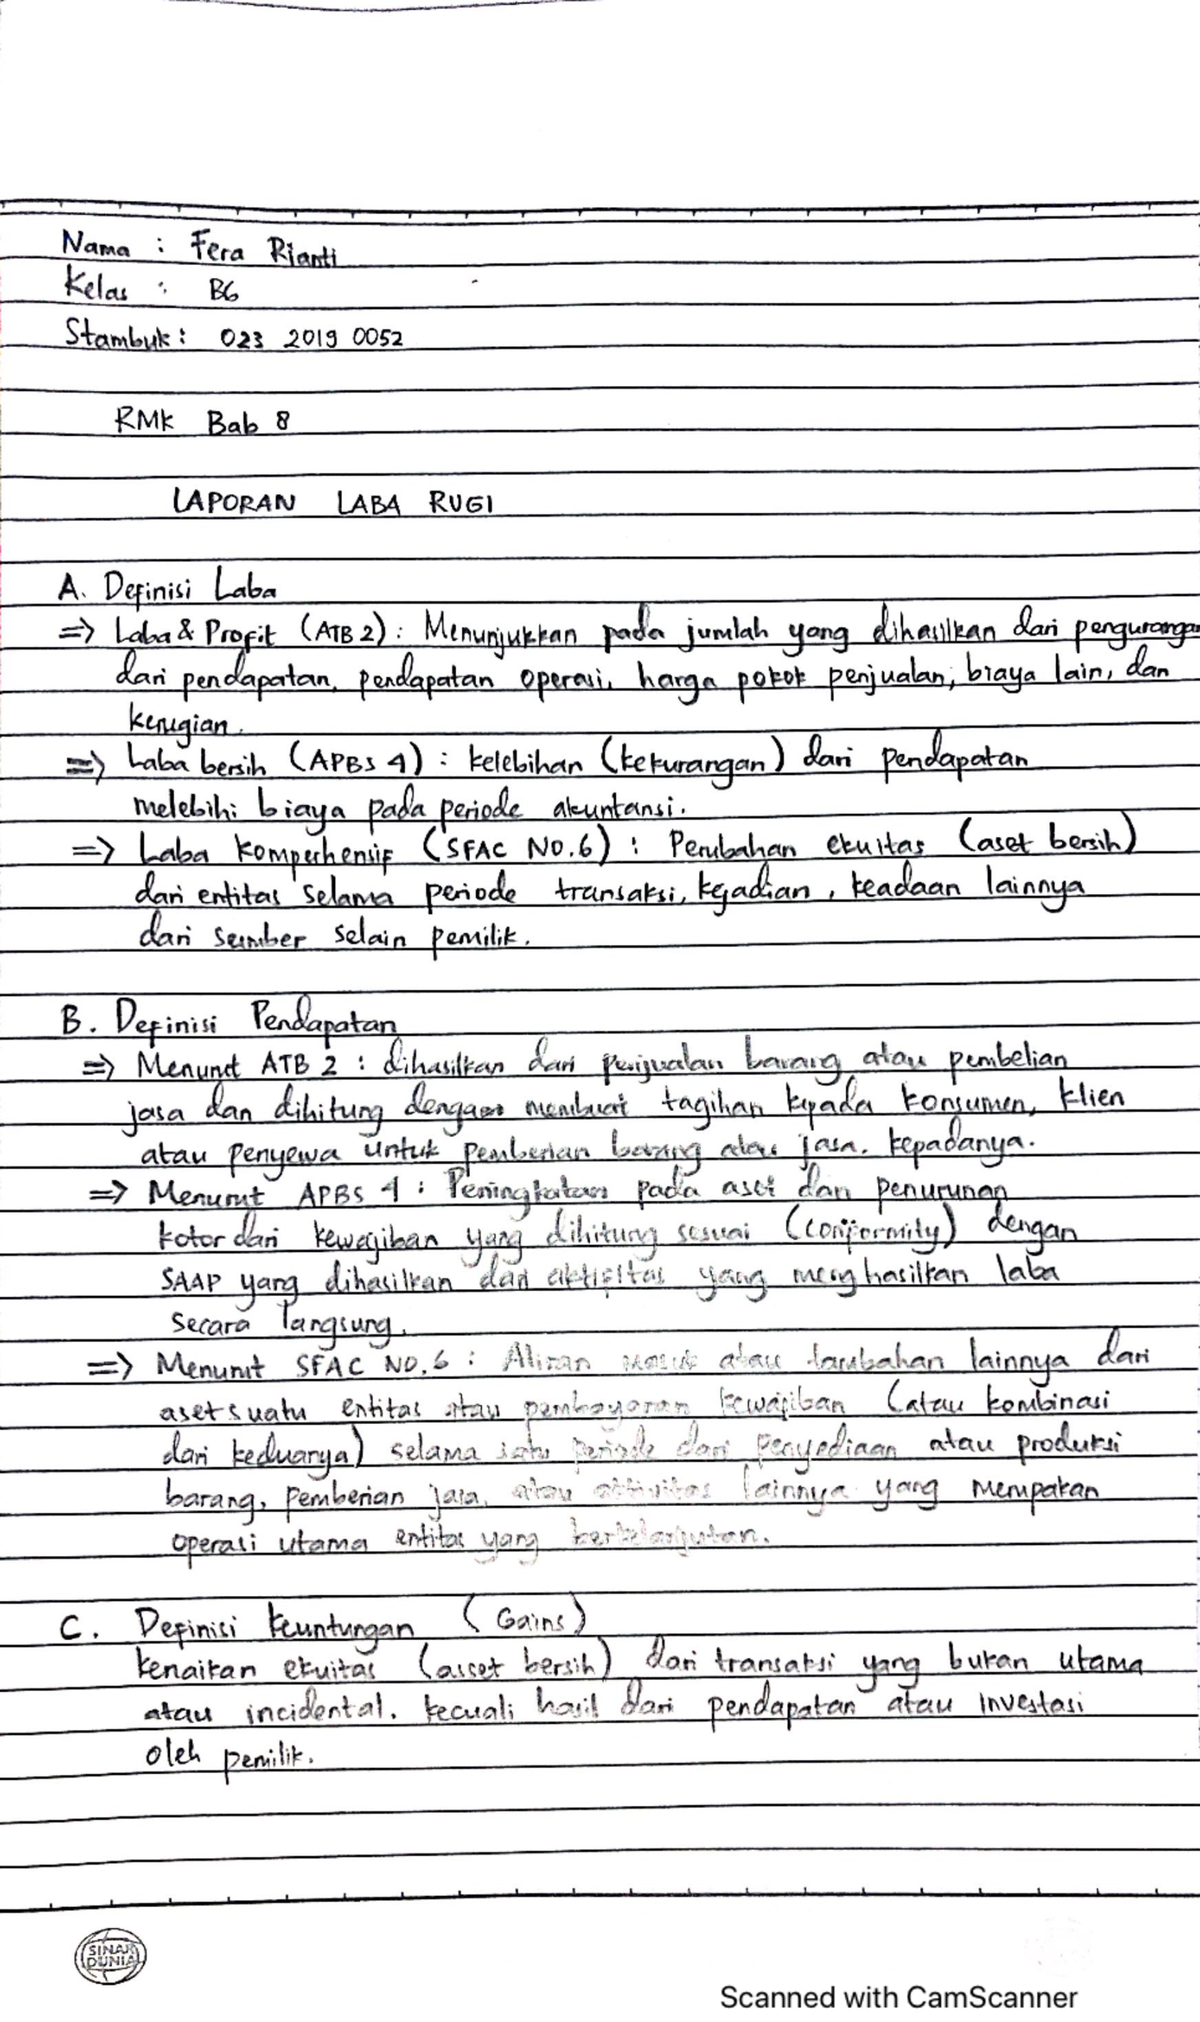 Nama : Fera Rianti
Kelas : B6
Stambuk : 023 2019 0052
RMK Bab 8
LAPORAN LABA RUGI
A. Definisi Laba
=> Laba & Profit (ATB 2) : Menunjukkan pada jumlah yang dihasilkan dari pengurangan
dari pendapatan, pendapatan operasi, harga pokok penjualan, biaya lain, dan
kerugian.
=> Laba bersih (APBS 4) : kelebihan (kekurangan) dari pendapatan
melebihi biaya pada periode akuntansi.
=> Laba komperhensif (SFAC NO.6) : Perubahan ekuitas (aset bersih)
dari entitas selama periode transaksi, kejadian, keadaan lainnya
dari sumber selain pemilik.
B. Definisi Pendapatan
=> Menurut ATB 2 : dihasilkan dari penjualan barang atau pembelian
jasa dan dihitung dengan membuat tagihan kepada konsumen, klien
atau penyewa untuk pemberian barang atau jasa. kepadanya.
=> Menurut APBS 4 : Peningkatan pada aset dan penurunan
kotor dari kewajiban yang dihitung sesuai (conformity) dengan
SAAP yang dihasilkan dari aktifitas yang menghasilkan laba
secara langsung.
=> Menurut SFAC NO.6 : Aliran masuk atau tambahan lainnya dari
aset suatu entitas atau pembayaran kewajiban (atau kombinasi
dari keduanya) selama satu periode dari penyediaan atau produksi
barang, pemberian jasa, atau aktivitas lainnya yang merupakan
operasi utama entitas yang berkelanjutan.
C. Definisi keuntungan (Gains)
kenaikan ekuitas (asset bersih) dari transaksi yang bukan utama
atau incidental. kecuali hasil dari pendapatan atau investasi
oleh pemilik.
SINAR
DUNIA
Scanned with CamScanner